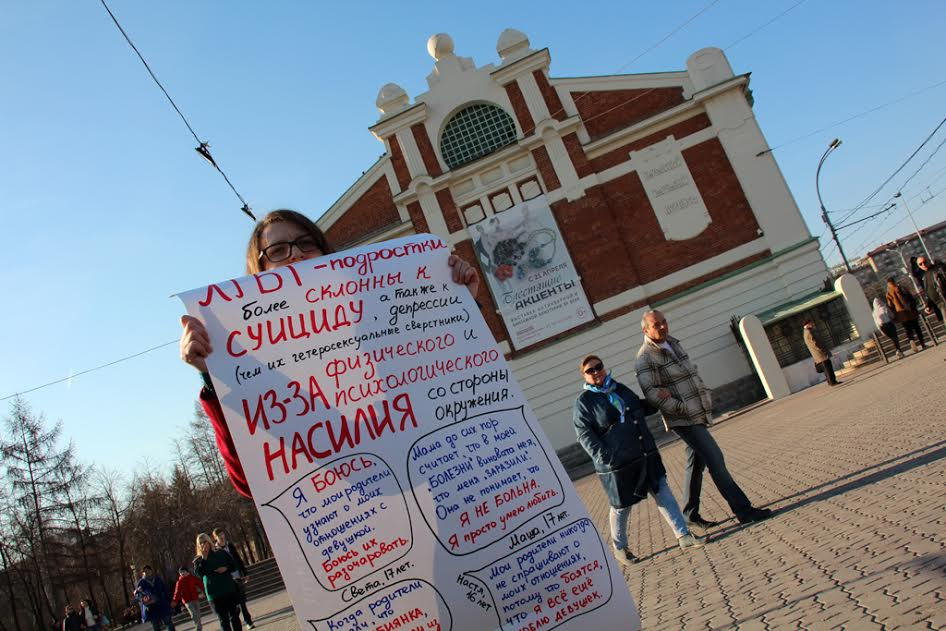 ЛГБТ-подростки
более склонны к
суициду, а также к
депрессии
(чем их гетеросексуальные сверстники)
ИЗ-ЗА физического и
психологического
НАСИЛИЯ со стороны
окружения.
Я боюсь,
что мои родители
узнают о моих
отношениях с
девушкой.
Боюсь их
разочаровать.
Света, 17 лет.
Мама до сих пор
считает, что в моей
"БОЛЕЗНИ" виновата не я,
что меня "ЗАРАЗИЛИ".
Она не понимает, что
Я НЕ БОЛЬНА.
Я просто умею любить.
Маша, 17 лет.
Когда родители
что
Мои родители никогда
не спрашивают о
моих отношениях,
потому что боятся,
что я всё ещё
люблю девушек.
Настя,
16 лет.
С 25 АПРЕЛЯ
Блестящие
АКЦЕНТЫ
6+